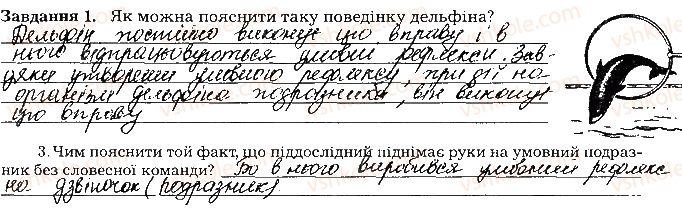 Завдання 1. Як можна пояснити таку поведінку дельфіна?
Дельфін постійно виконує цю вправу і в
нього відпрацьовуються умовні рефлекси. Зав-
дяки утворенню умовного рефлексу, при дії на
організм дельфіна подразника, він виконує
цю вправу
3. Чим пояснити той факт, що піддослідний піднімає руки на умовний подраз-
ник без словесної команди? Бо в нього виробився умовний рефлекс
на дзвіночок (подразник)